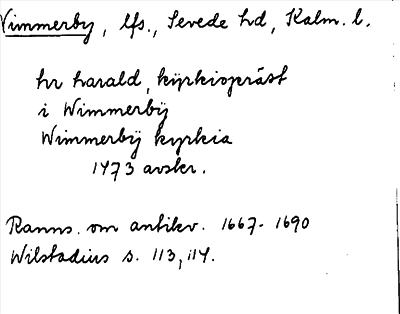 Vimmerby, lfs., Sevede hd, Kalm. l.
hr harald, kyrkiopräst
i Wimmerbÿ
Wimmerbÿ kyrkia
1473 avskr.
Ranns. om antikv. 1667-1690
Wilstadius s. 113, 114.